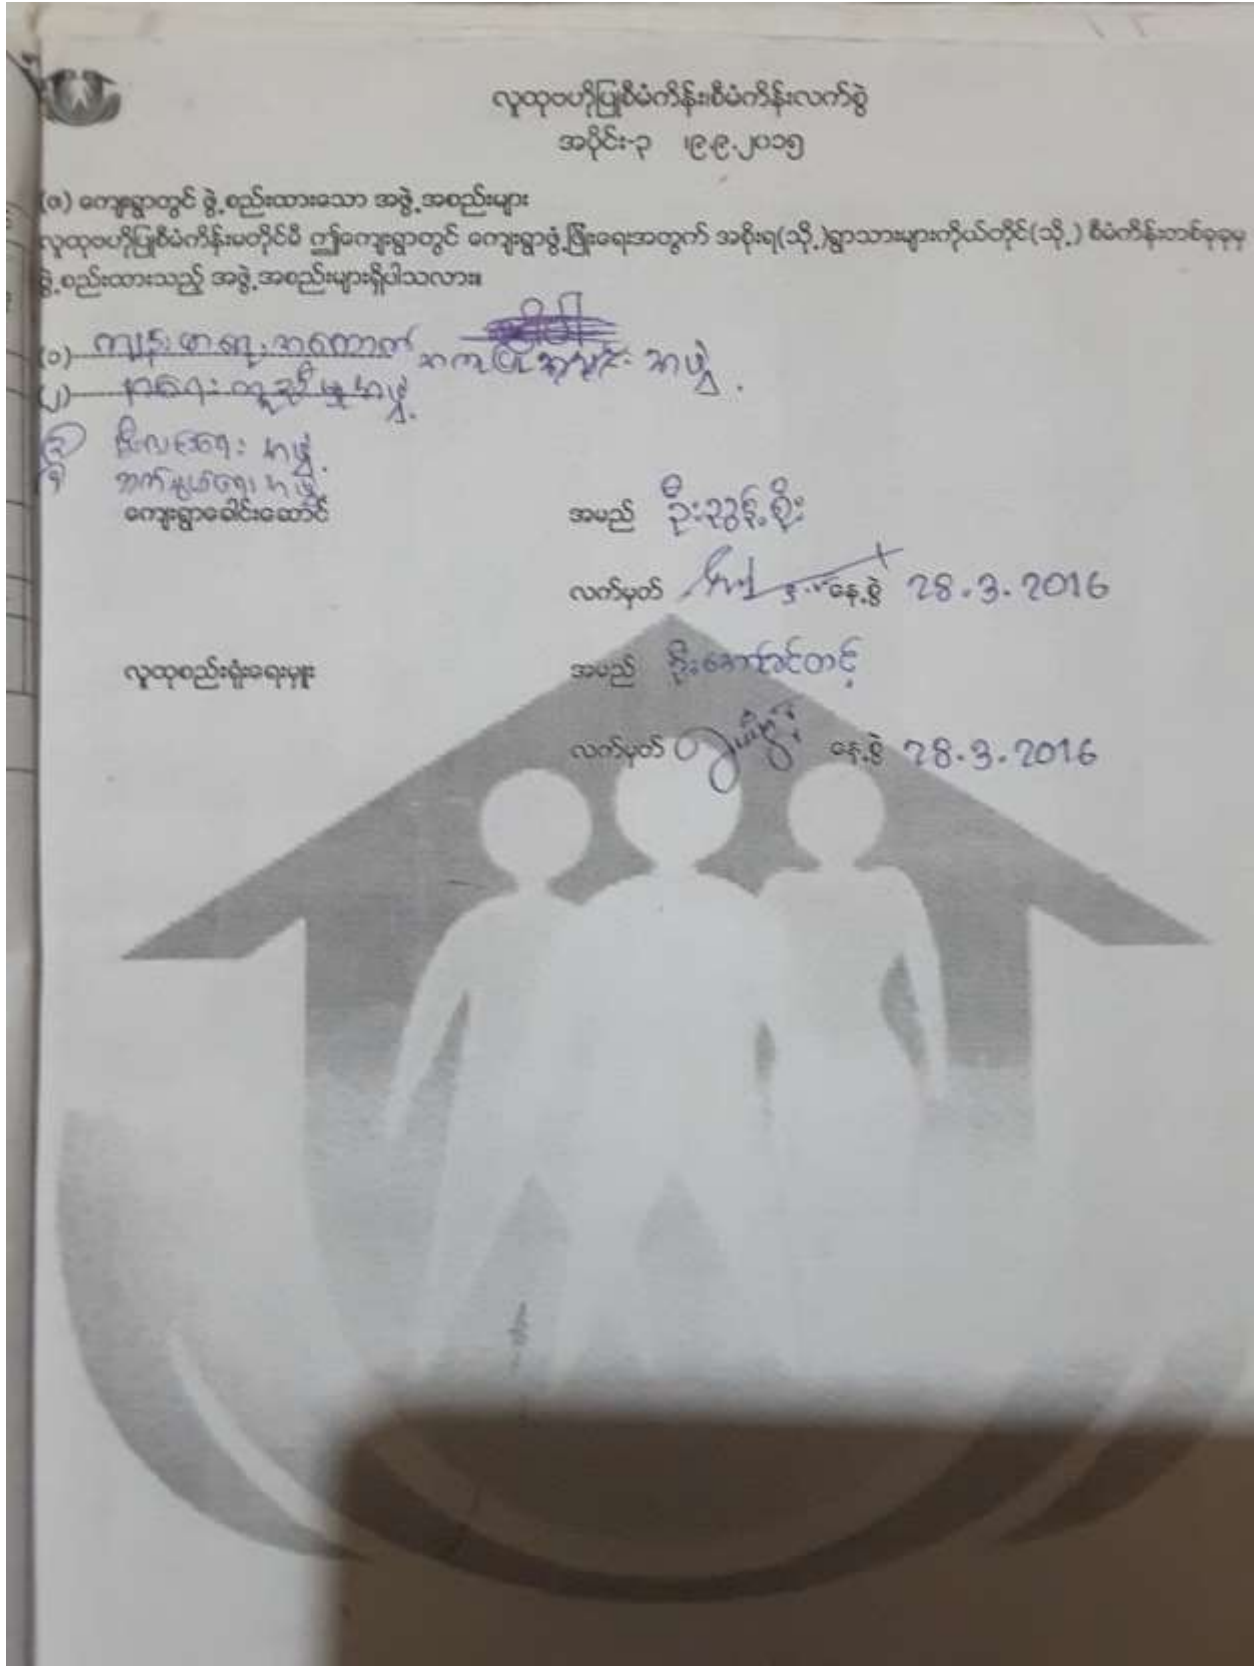 လူထုဗဟိုပြုစီမံကိန်း၊စီမံကိန်းလက်စွဲ
အပိုင်း-၃ ၊၉.၉.၂၀၁၅
(ဇ) ကျေးရွာတွင် ဖွဲ့စည်းထားသော အဖွဲ့အစည်းများ
လူထုဗဟိုပြုစီမံကိန်းမတိုင်မီ ဤကျေးရွာတွင် ကျေးရွာဖွံ့ဖြိုးရေးအတွက် အစိုးရ(သို့)ရွာသားများကိုယ်တိုင်(သို့) စီမံကိန်းတစ်ခုခုမှ
ဖွဲ့စည်းထားသည့် အဖွဲ့အစည်းများရှိပါသလား။
(၁) ကျန်းမာရေး အထောက်အကူပြု အဖွဲ့
(၂) နာရေးကူညီမှုအဖွဲ့
၃ မီးလင်းရေး အဖွဲ့
၄ ဆက်သွယ်ရေး အဖွဲ့
ကျေးရွာခေါင်းဆောင် အမည် ဦးညွန့်စိုး
လက်မှတ် နေ့စွဲ 28.3.2016
လူထုစည်းရုံးရေးမှူး အမည် ဦးအောင်တင့်
လက်မှတ် နေ့စွဲ 28.3.2016